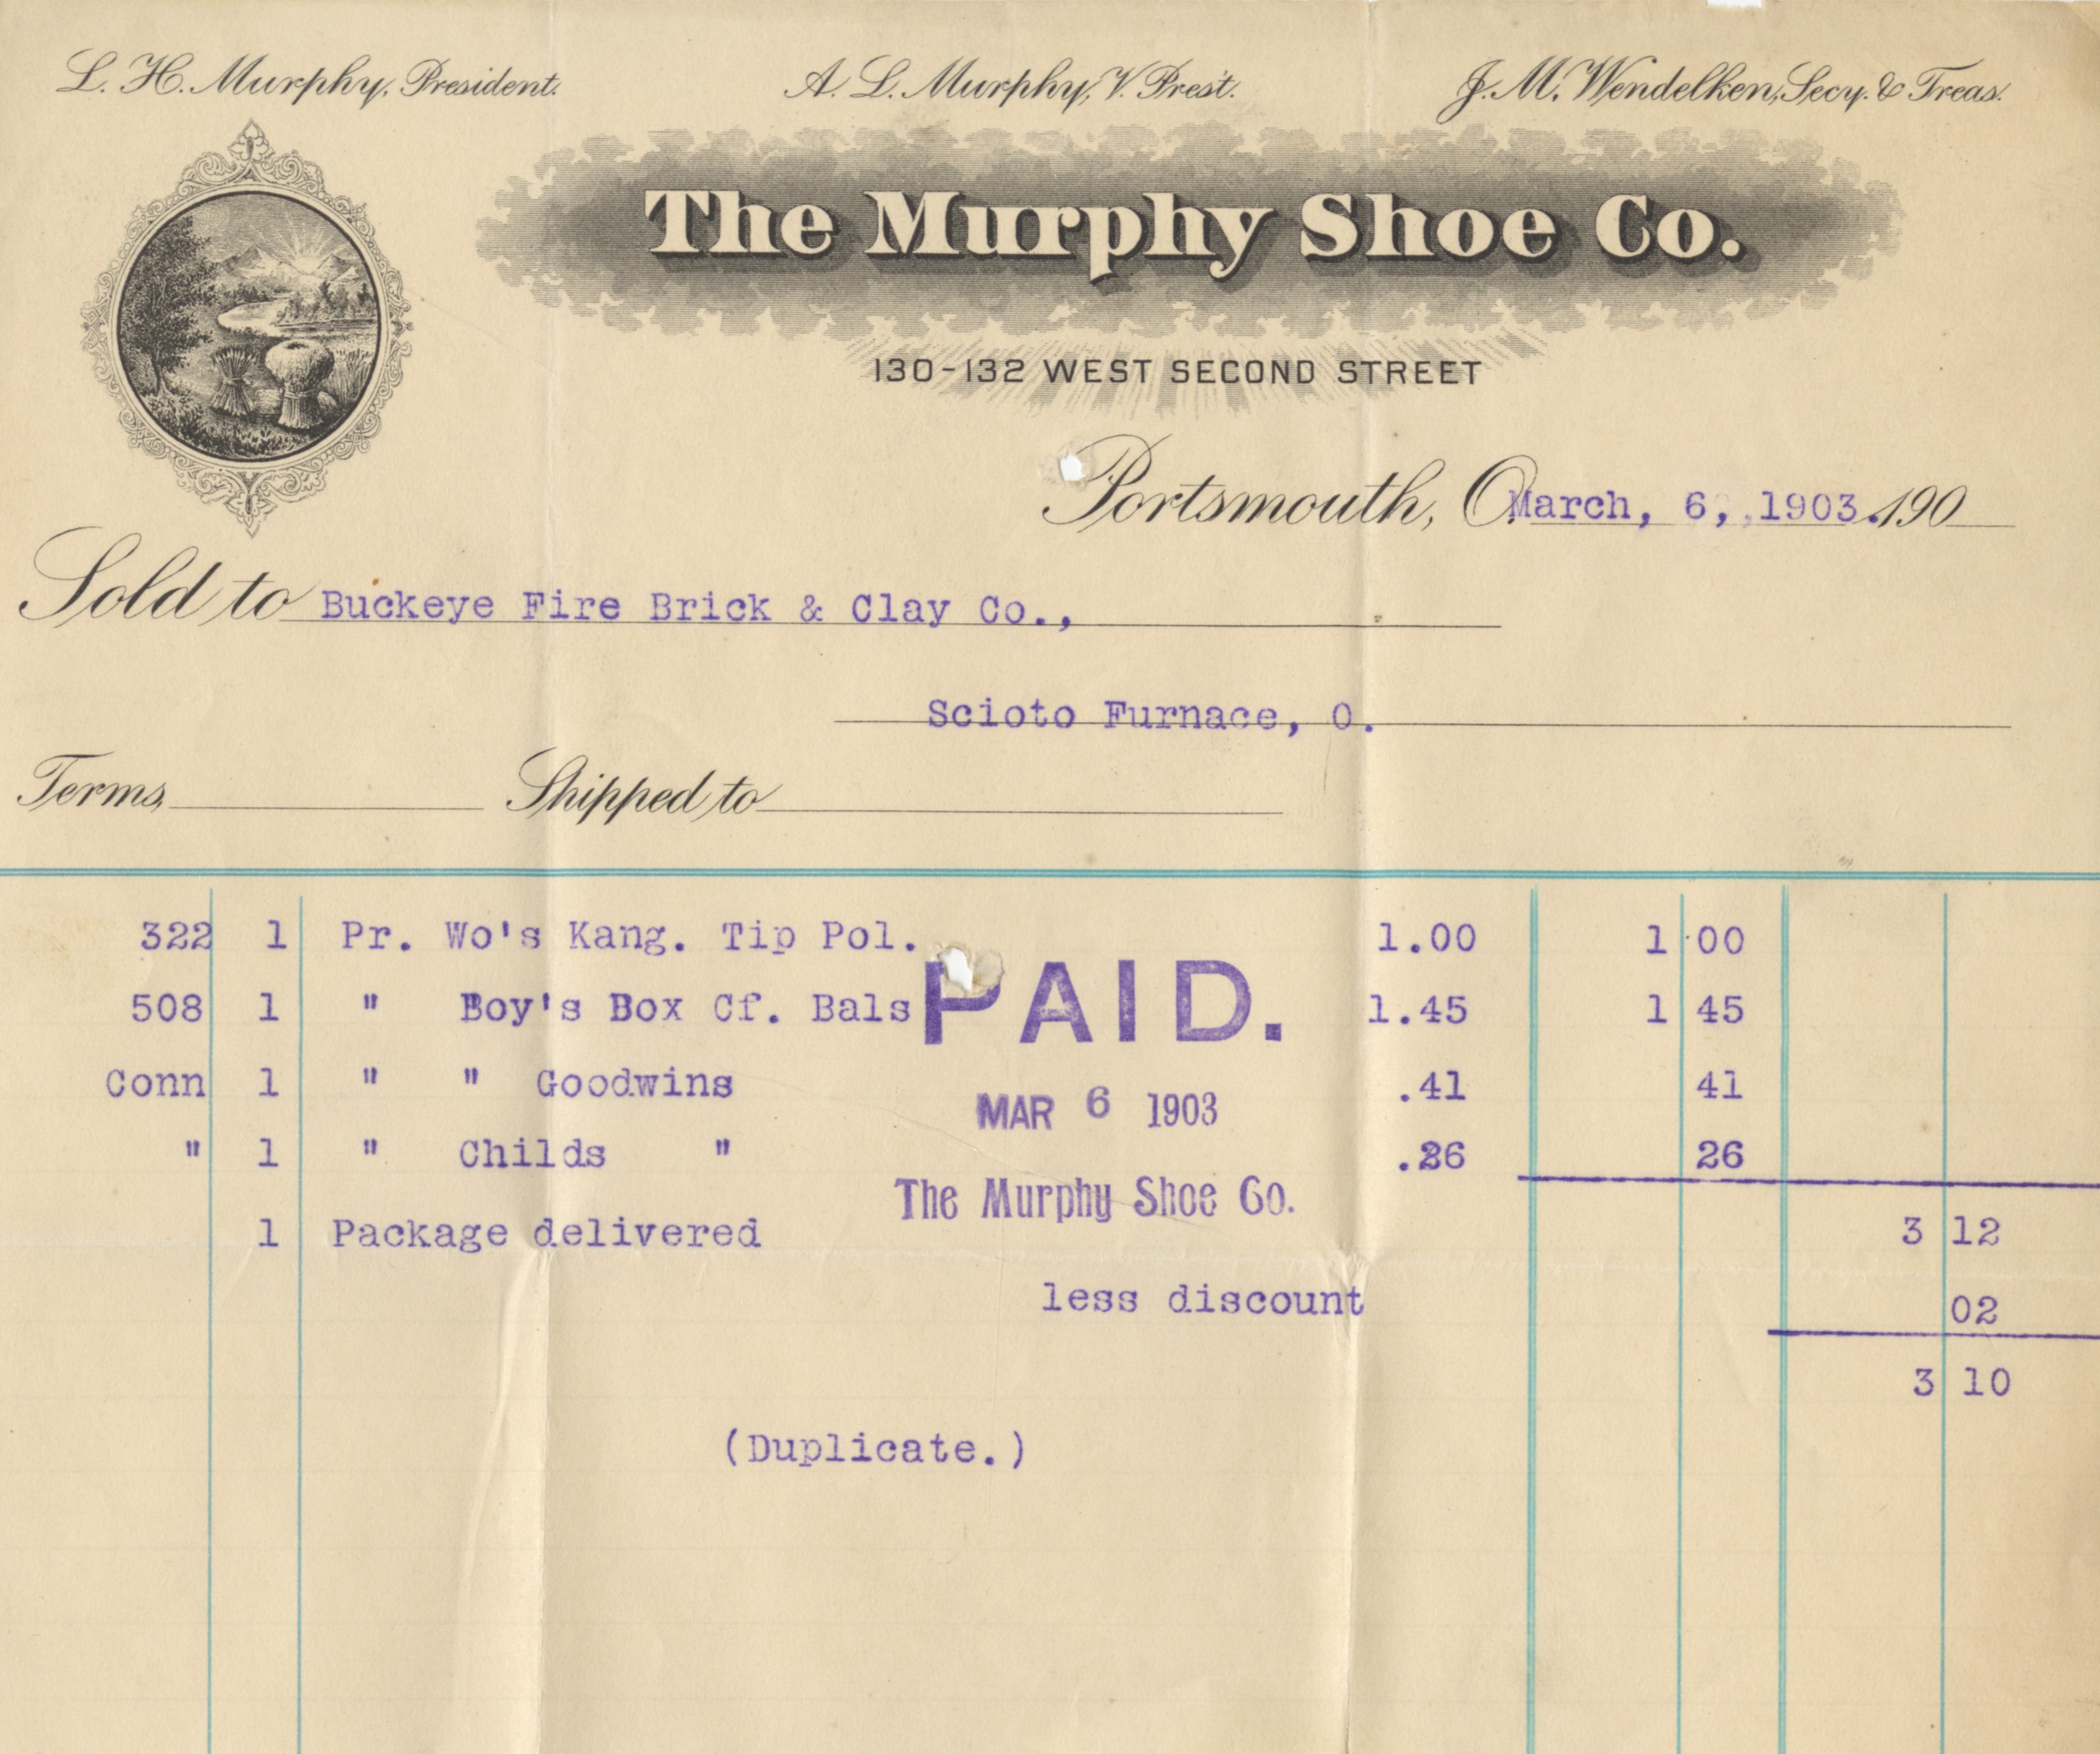 L. H. Murphy, President. A. L. Murphy, V. Prest. J. M. Wendelken, Secy. & Treas.
The Murphy Shoe Co.
130-132 WEST SECOND STREET
Portsmouth, O. March, 6, 1903. 190
Sold to Buckeye Fire Brick & Clay Co.,
Scioto Furnace, O.
Terms, Shipped to
322 1 Pr. Wo's Kang. Tip Pol. 1.00 1 00
508 1 " Boy's Box Cf. Bals 1.45 1 45
PAID.
Conn 1 " " Goodwins .41 41
MAR 6 1903
" 1 " Childs " .26 26
The Murphy Shoe Co.
1 Package delivered 3 12
less discount 02
3 10
(Duplicate.)